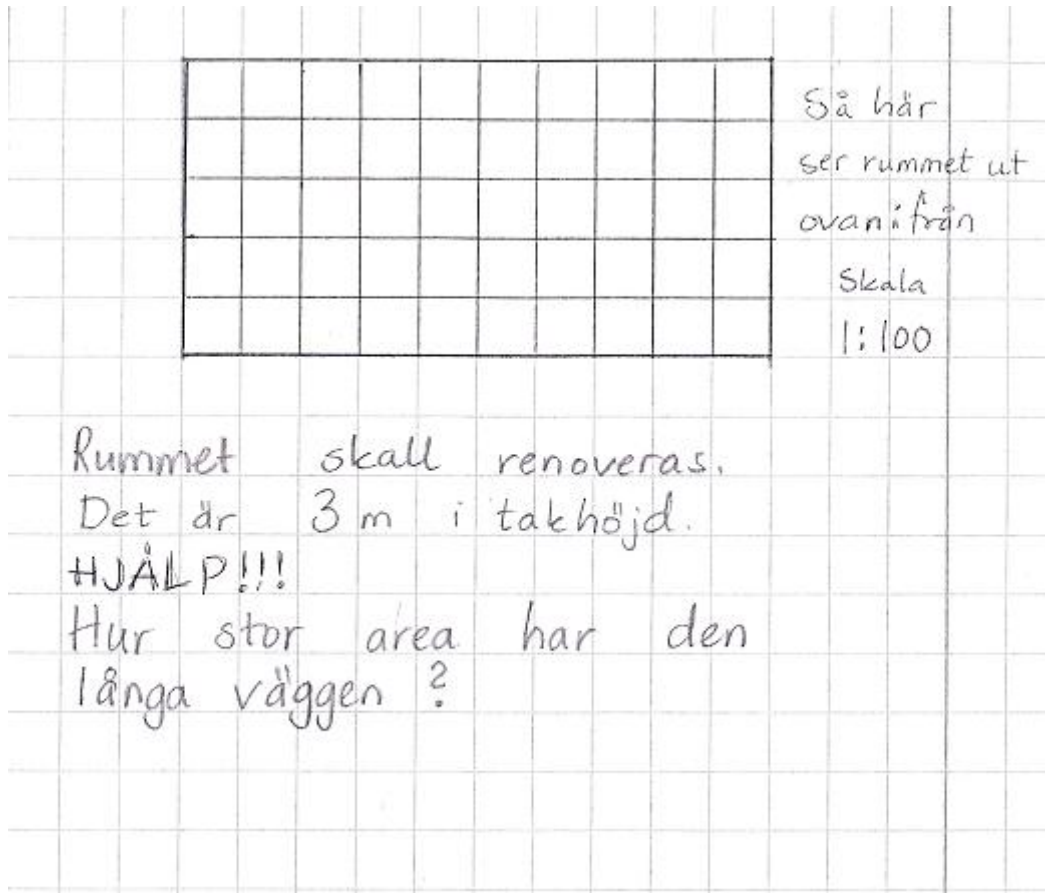 Så här
ser rummet ut
ovanifrån
Skala
1:100
Rummet skall renoveras.
Det är 3 m i takhöjd.
HJÄLP!!!
Hur stor area har den
långa väggen ?